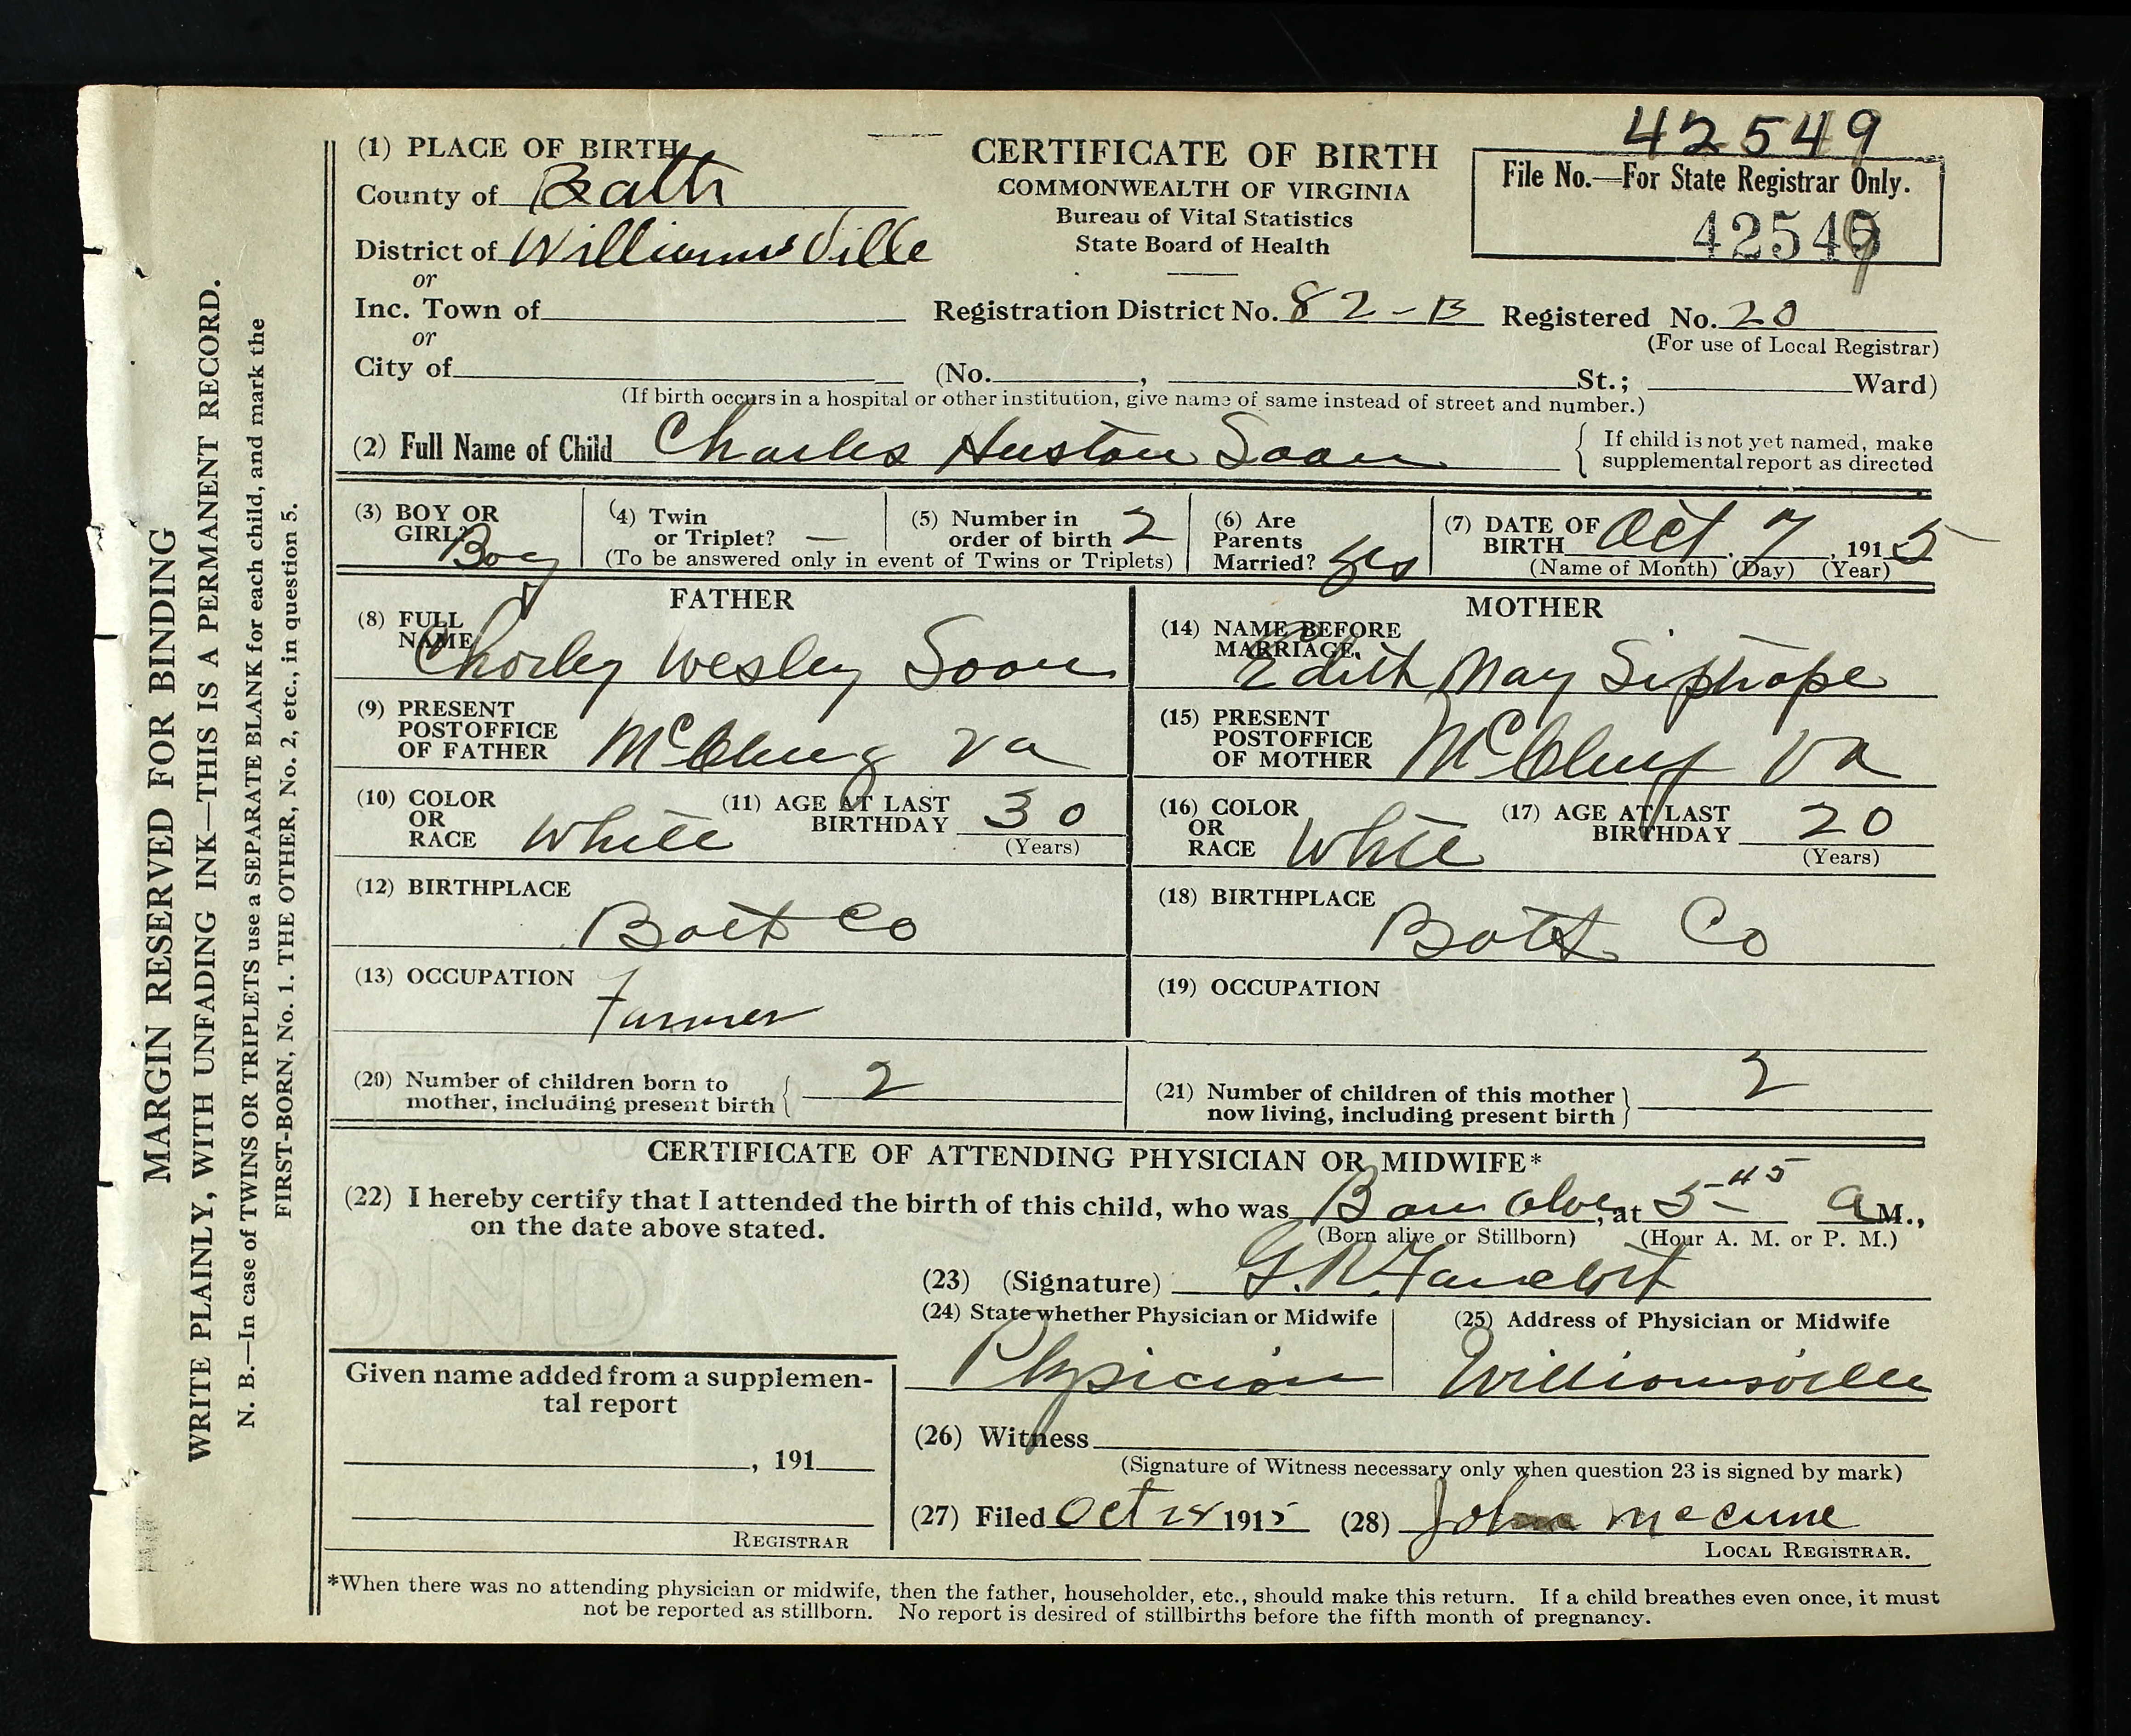 42549
(1) PLACE OF BIRTH
County of Bath
District of Williamsville
or
Inc. Town of
or
City of
CERTIFICATE OF BIRTH
COMMONWEALTH OF VIRGINIA
Bureau of Vital Statistics
State Board of Health
File No.—For State Registrar Only.
42549
Registration District No. 82-B Registered No. 20
(For use of Local Registrar)
(No. , St.; Ward)
(If birth occurs in a hospital or other institution, give name of same instead of street and number.)
(2) Full Name of Child Charles Huston Soon
If child is not yet named, make
supplemental report as directed
(3) BOY OR
GIRL? Boy
(4) Twin
or Triplet? —
(5) Number in
order of birth 2
(To be answered only in event of Twins or Triplets)
(6) Are
Parents
Married? Yes
(7) DATE OF
BIRTH Oct. 7, 1915
(Name of Month) (Day) (Year)
FATHER
(8) FULL
NAME Chorley Wesley Soon
(9) PRESENT
POSTOFFICE
OF FATHER McClung Va
(10) COLOR
OR
RACE White
(11) AGE AT LAST
BIRTHDAY 30
(Years)
(12) BIRTHPLACE
Bath Co
(13) OCCUPATION
Farmer
MOTHER
(14) NAME BEFORE
MARRIAGE. Edith May
(15) PRESENT
POSTOFFICE
OF MOTHER McClung Va
(16) COLOR
OR
RACE White
(17) AGE AT LAST
BIRTHDAY 20
(Years)
(18) BIRTHPLACE
Bath Co
(19) OCCUPATION
(20) Number of children born to
mother, including present birth 2
(21) Number of children of this mother
now living, including present birth 2
CERTIFICATE OF ATTENDING PHYSICIAN OR MIDWIFE*
(22) I hereby certify that I attended the birth of this child, who was Born alive, at 5-45 A M.,
on the date above stated.
(Born alive or Stillborn) (Hour A. M. or P. M.)
(23) (Signature) G. R.
(24) State whether Physician or Midwife
Physician
(25) Address of Physician or Midwife
Williamsville
(26) Witness
(Signature of Witness necessary only when question 23 is signed by mark)
(27) Filed Oct 28 1915 (28) John McCune
LOCAL REGISTRAR.
Given name added from a supplemen-
tal report
, 191
REGISTRAR
*When there was no attending physician or midwife, then the father, householder, etc., should make this return. If a child breathes even once, it must
not be reported as stillborn. No report is desired of stillbirths before the fifth month of pregnancy.
MARGIN RESERVED FOR BINDING
WRITE PLAINLY, WITH UNFADING INK—THIS IS A PERMANENT RECORD.
N. B.—In case of TWINS OR TRIPLETS use a SEPARATE BLANK for each child, and mark the
FIRST-BORN, No. 1. THE OTHER, No. 2, etc., in question 5.